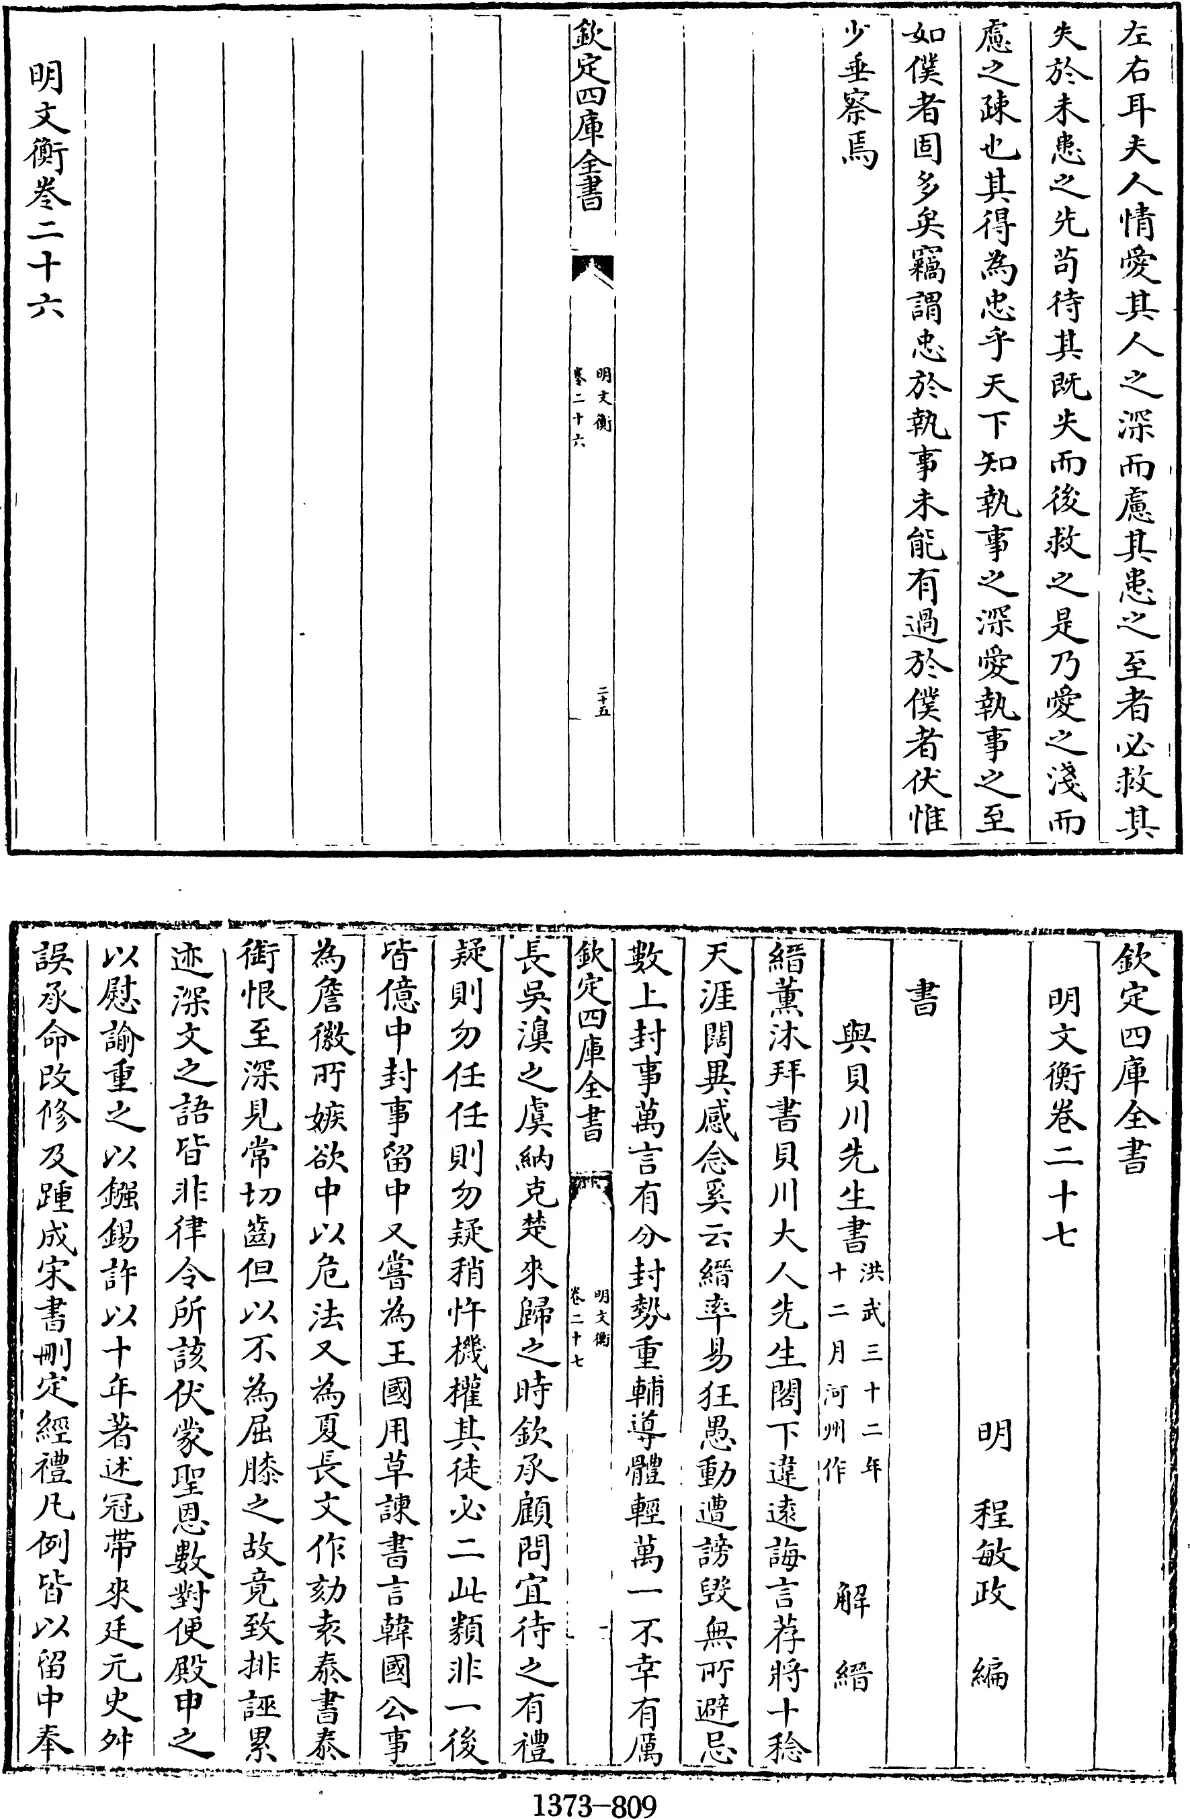 左右耳夫人情愛其人之深而慮其患之至者必救其
失於未患之先苟待其既失而後救之是乃愛之淺而
慮之疎也其得為忠乎天下知執事之深愛執事之至
如僕者固多矣竊謂忠於執事未能有過於僕者伏惟
少垂察焉
欽定四庫全書
明文衡
卷二十六
二十五
明文衡卷二十六
欽定四庫全書
明文衡卷二十七
明 程敏政 編
書
與貝川先生書
洪武三十二年
十二月河州作
解縉
縉薰沐拜書貝川大人先生閣下違遠誨言荐將十稔
天涯闊異感念奚云縉率易狂愚動遭謗毀無所避忌
數上封事萬言有分封勢重輔導體輕萬一不幸有厲
欽定四庫全書
明文衡
卷二十七
一
長吳濞之虞納克楚來歸之時欽承顧問宜待之有禮
疑則勿任任則勿疑稍忤機權其徒必二此類非一後
皆億中封事留中又嘗為王國用草諫書言韓國公事
為詹徽所嫉欲中以危法又為夏長文作劾袁泰書泰
銜恨至深見常切齒但以不為屈膝之故竟致排誣累
迹深文之語皆非律令所該伏蒙聖恩數對便殿申之
以慰諭重之以鏹錫許以十年著述冠帶來廷元史舛
誤承命改修及踵成宋書刪定經禮凡例皆以留中奉
1373-809